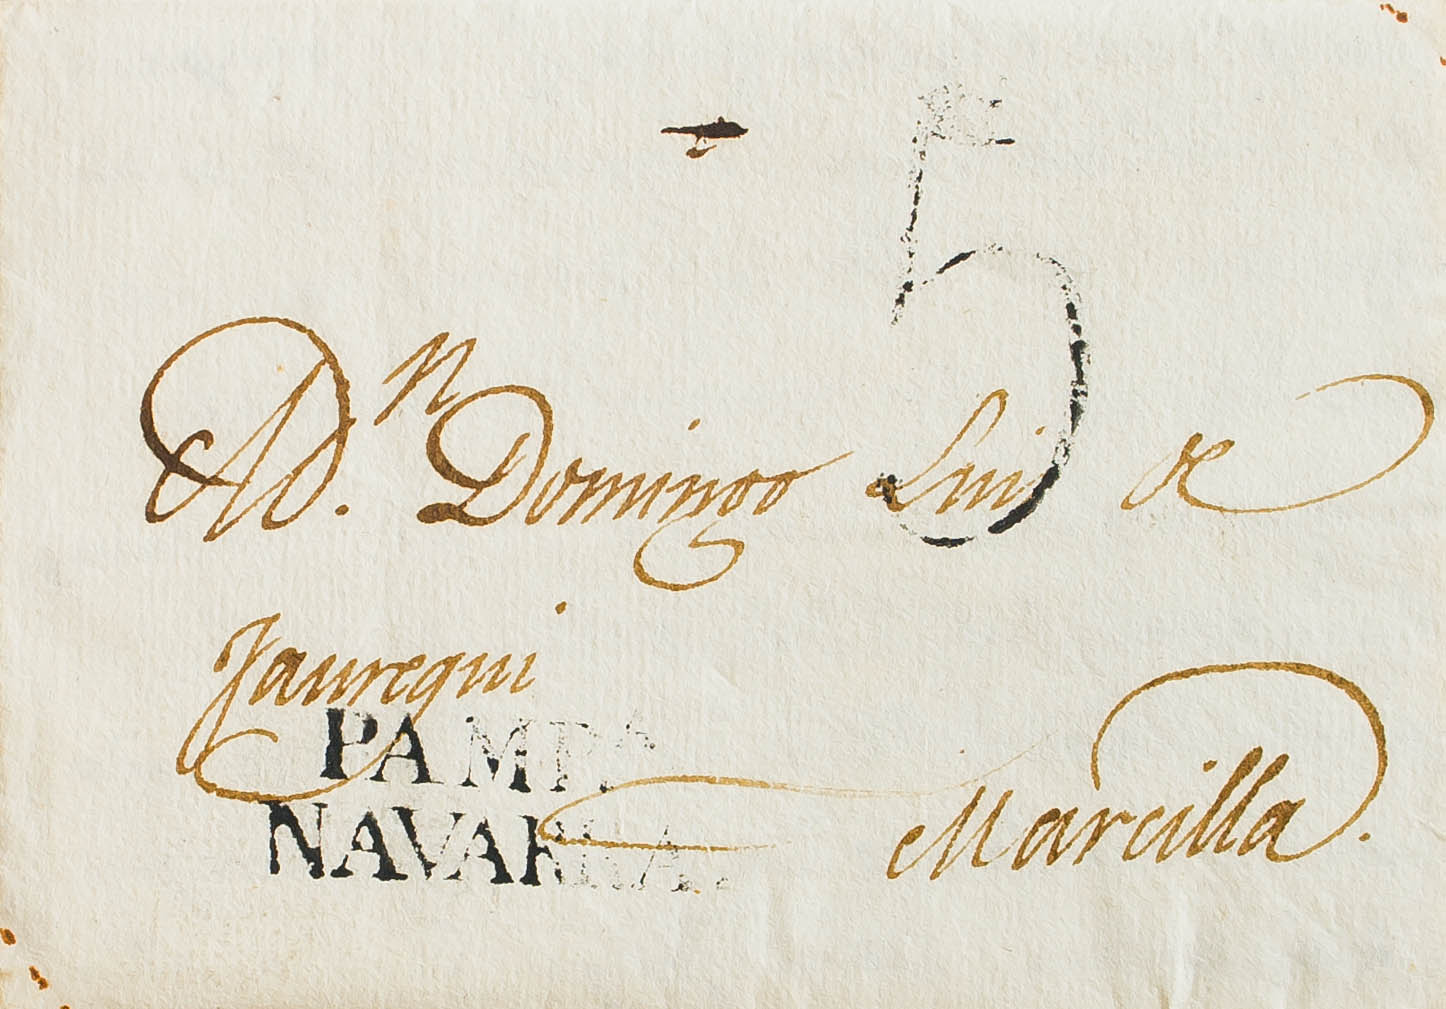 5
A D.n Domingo Luis de
Jauregui
PAMPA
NAVARRA.
Marcilla.